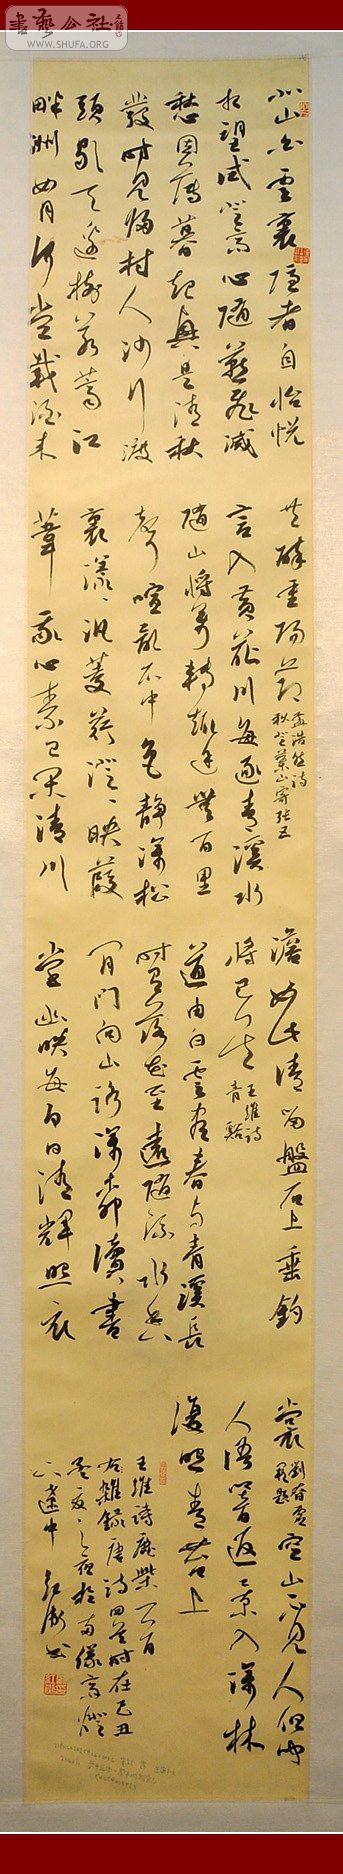 書藝公社
WWW.SHUFA.ORG
北山白雲裏隱者自怡悅
相望試登高心隨鴈飛滅
愁因薄暮起興是清秋
發時見歸村人沙行渡
頭歇天邊樹若薺江
畔洲如月何當載酒來
共醉重陽節
孟浩然詩
秋登蘭山寄張五
言入黃花川每逐青溪水
隨山將萬轉趣途無百里
聲喧亂石中色靜深松
裏漾漾汎菱荇澄澄映葭
葦我心素已閑清川
澹如此請留盤石上垂釣
將已矣
王維詩
青谿
道由白雲盡春與青溪長
時有落花至遠隨流水香
閑門向山路深柳讀書
堂幽映每白日清輝照衣
裳
劉眘虛
闕題
空山不見人但聞
人語響返景入深林
復照青苔上
王維詩鹿柴一首
右雜錄唐詩四首時在己丑
孟夏之夜於南